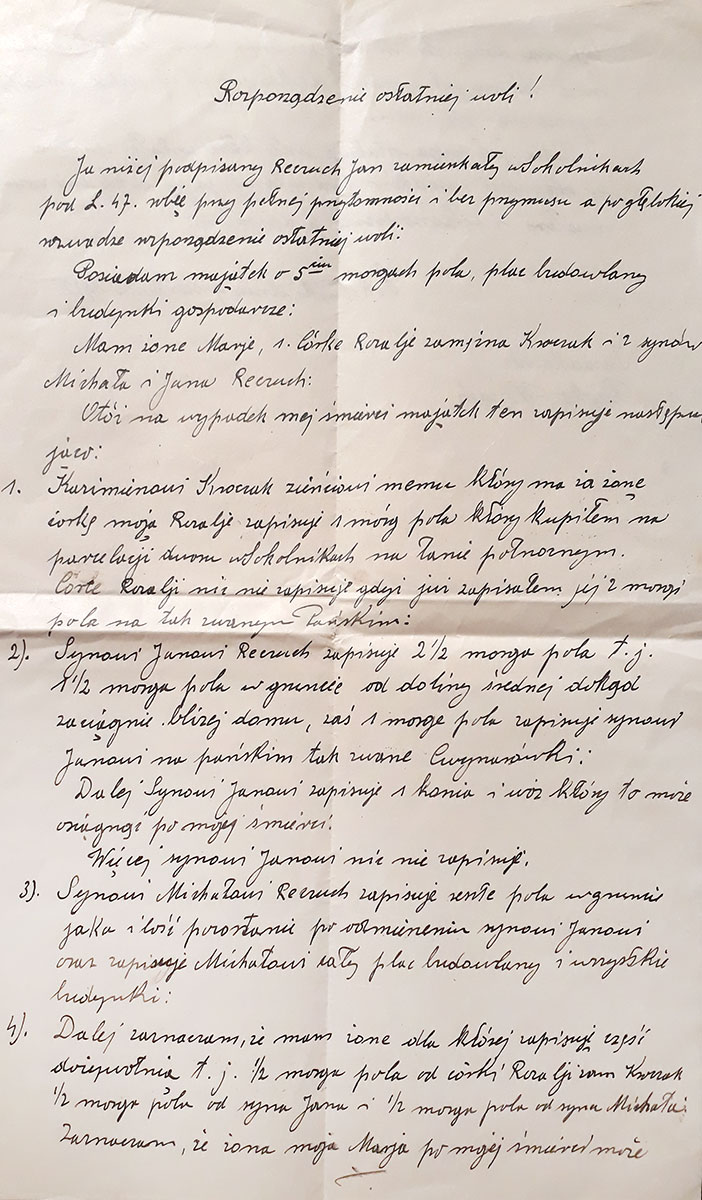 Rozporządzenie ostatniej woli!
Ja niżej podpisany Reczuch Jan zamieszkały w Sokolnikach
pod L. 47. robię przy pełnej przytomności i bez przymusu a po głębokiej
rozwadze rozporządzenie ostatniej woli:
Posiadam majątek o 5 ciu morgach pola, plac budowlany
i budynki gospodarcze:
Mam żone Marje, 1. Córke Rozalje zamężna Kroczak i 2 synów
Michała i Jana Reczuch:
Otóż na wypadek mej śmierci majątek ten zapisuje następu
jąco:
1. Kazimierzowi Kroczak zięciowi memu który ma za żonę
córkę moją Rozalje zapisuję 1 mórg pola który kupiłem na
parcelacji dworu w Sokolnikach na łanie północnym.
Córce Rozalji nic nie zapisuje gdyż już zapisałem jej 2 morgi
pola na tak zwanym Pańskim:
2). Synowi Janowi Reczuch zapisuje 2 1/2 morga pola t. j.
1 1/2 morga pola w gruncie od doliny średnej dokąd
zaciągnie bliżej domu, zaś 1 morge pola zapisuje synowi
Janowi na pańskim tak zwane Cwynarówki:
Dalej Synowi Janowi zapisuje 1 konia i wóz który to może
osiągnąć po mojej śmierci.
Więcej synowi Janowi nic nie zapisuję.
3). Synowi Michałowi Reczuch zapisuje reszte pola w gruncie
jaka ilość pozostanie po odmierzeniu synowi Janowi
oraz zapisuje Michałowi cały plac budowlany i wszystkie
budynki:
4). Dalej zaznaczam, że mam żone dla której zapisuję część
dożywotnią t. j. 1/2 morga pola od córki Rozalji zam Kroczak
1/2 morga pola od syna Jana i 1/2 morga pola od syna Michała:
Zaznaczam, że żona moja Marja po mojej śmierci może